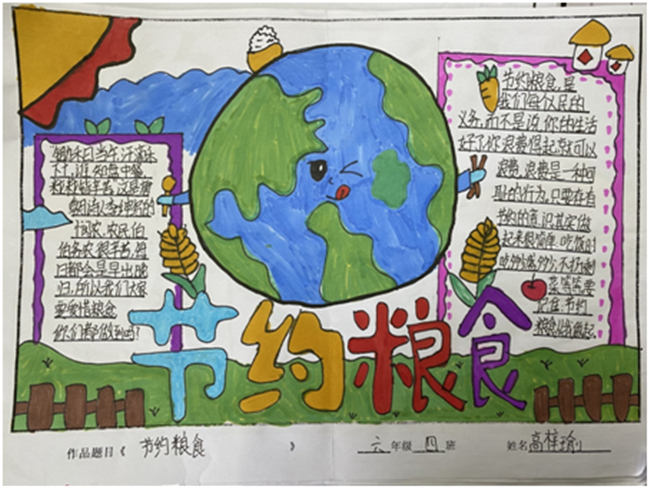 锄禾日当午,汗滴禾
下土,谁知盘中餐
粒粒皆辛苦,这是唐
朝诗人李绅写的
悯农,农民伯
伯务农很辛苦,每
日都会是早出晚
归,所以我们大家
要爱惜粮食
你们都做到吗?
节约粮食,是
我们每个公民的
义务,而不是说,你的生活
好了,你浪费得起就可以
浪费,浪费是一种可
耻的行为,只要存有
节约的意识其实做
起来很简单:吃饭时
吃多少盛多少;不扔剩
菜等等要
记住:节约
粮食从我做起。
节约粮食
作品题目《 节约粮食 》 六年级 四 班 姓名 高梓瑜